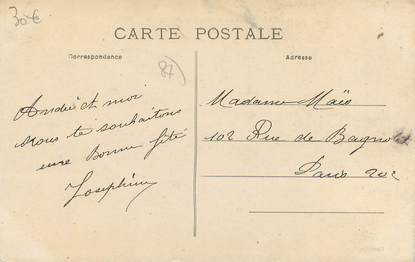 30€
CARTE POSTALE
Correspondance
Adresse
87
et moi
Nous te souhaitons
une Bonne fête
Joséphine
Madame Maïs
102 Rue de Bagnolet
Paris 20e